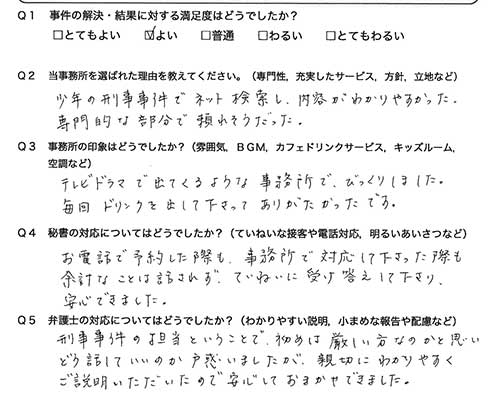 Q1 事件の解決・結果に対する満足度はどうでしたか？
□とてもよい ☑よい □普通 □わるい □とてもわるい
Q2 当事務所を選ばれた理由を教えてください。（専門性，充実したサービス，方針，立地など）
少年の刑事事件でネット検索し、内容がわかりやすかった。
専門的な部分で頼れそうだった。
Q3 事務所の印象はどうでしたか？（雰囲気，ＢＧＭ，カフェドリンクサービス，キッズルーム，
空調など）
テレビドラマで出てくるような事務所で、びっくりしました。
毎回ドリンクを出して下さってありがたかったです。
Q4 秘書の対応についてはどうでしたか？（ていねいな接客や電話対応，明るいあいさつなど）
お電話で予約した際も、事務所で対応して下さった際も
余計なことは話されず、ていねいに受け答えして下さり、
安心できました。
Q5 弁護士の対応についてはどうでしたか？（わかりやすい説明，小まめな報告や配慮など）
刑事事件の担当ということで、初めは厳しい方なのかと思い
どう話していいのか戸惑いましたが、親切にわかりやすく
ご説明いただいたので安心しておまかせできました。